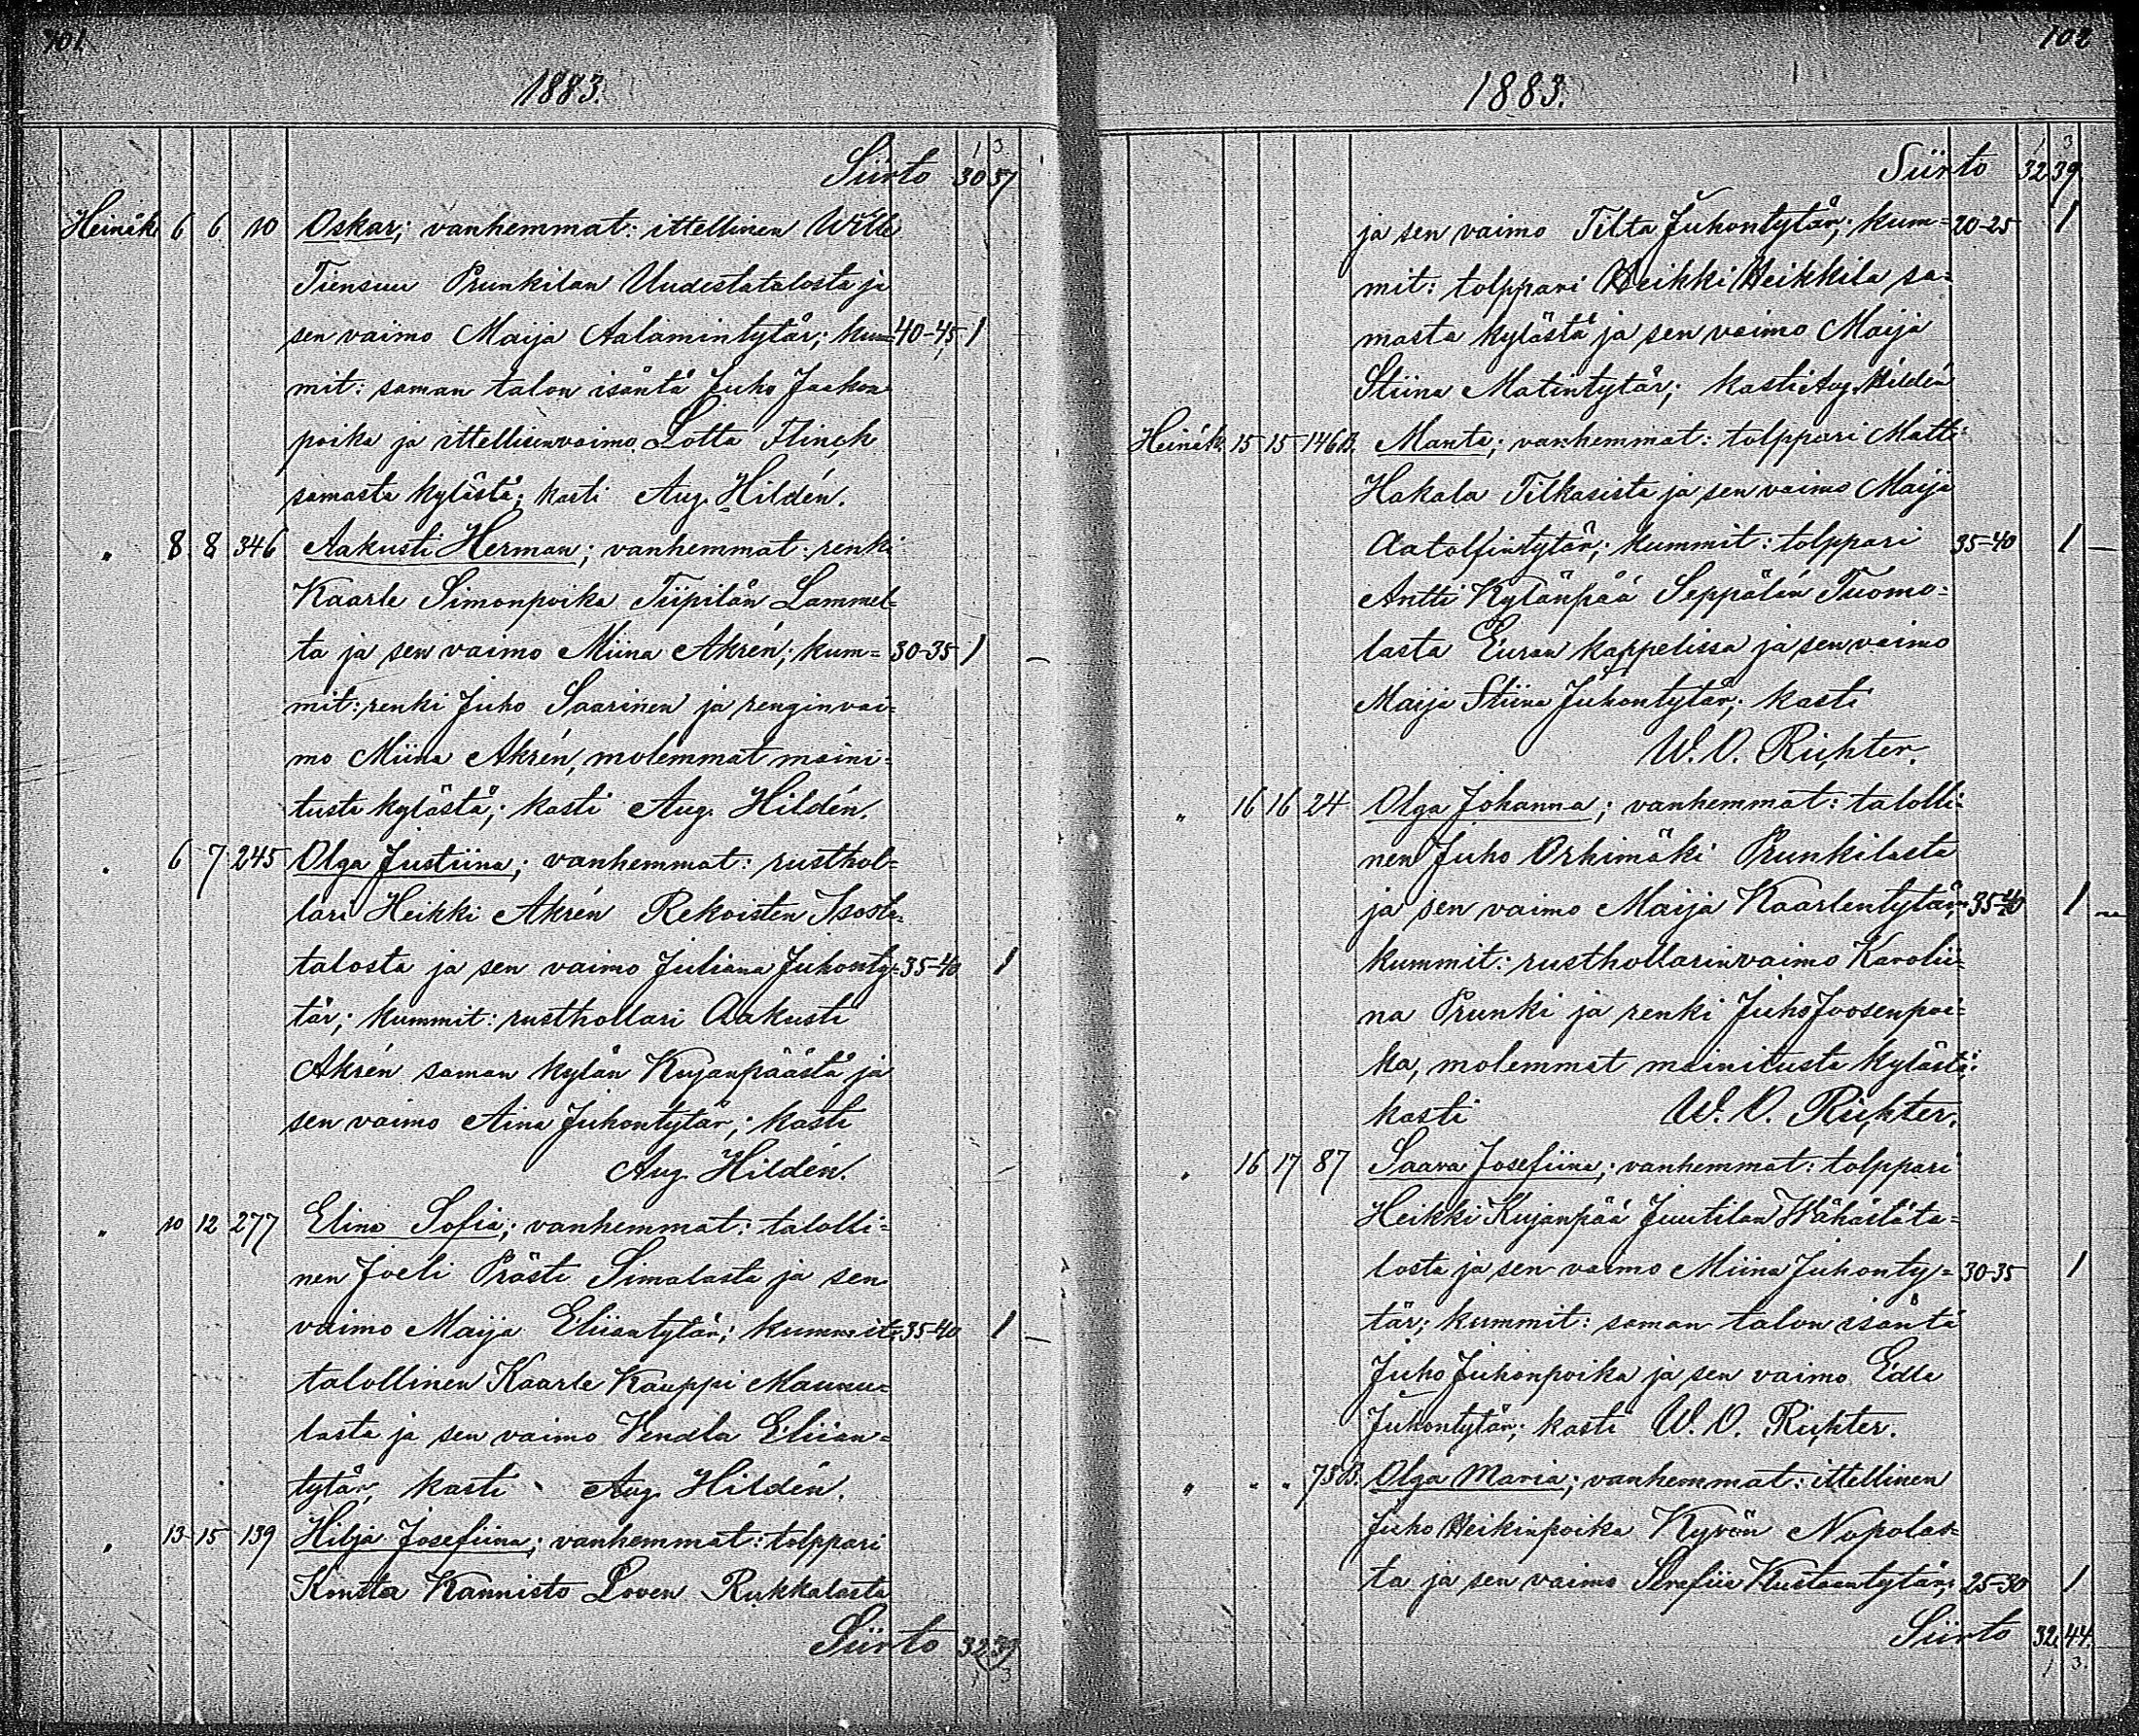 101.
1883.
1 3
Siirto 30 37
Heinäk. 6 6 10 Oskar; vanhemmat: ittellinen Wille
Tiensuu Prunkilan Uudestatalosta ja
sen vaimo Maija Aatamintytär; kum= 40-45 1
mit: saman talon isäntä Juho Jaakon=
poika ja ittellisenvaimo Lotta Flinck
samasta kylästä; kasti Aug. Hildén.
" 8 8 346 Aakusti Herman; vanhemmat: renki
Kaarle Simonpoika Tiipilän Lammel=
ta ja sen vaimo Miina Akrén; kum= 30-35 1
mit: renki Juho Saarinen ja renginvai=
mo Miina Akrén, molemmat maini=
tusta kylästä; kasti Aug. Hildén.
" 6 7 245 Olga Justiina; vanhemmat: rusthol=
lari Heikki Akrén Rekoisten Isosta=
talosta ja sen vaimo Juliana Juhonty= 35-40 1
tär; kummit: rusthollari Aakusti
Akrén saman kylän Kujanpäästä ja
sen vaimo Aina Juhontytär; kasti
Aug. Hildén.
" 10 12 277 Elina Sofia; vanhemmat: talolli=
nen Joeli Prästi Simalasta ja sen
vaimo Maija Eliiantytär; kummit: 35-40 1
talollinen Kaarle Kauppi Maunu=
lasta ja sen vaimo Vendla Eliian=
tytär, kasti Aug. Hildén.
" 13 15 139 Hilja Josefiina; vanhemmat: tolppari
Konsta Kannisto Loven Rukkalasta
Siirto 32 39
1 3
102
1883.
1 3
Siirto 32 39
ja sen vaimo Tilta Juhontytär; kum= 20-25 1
mit: tolppari Heikki Heikkilä sa=
masta kylästä ja sen vaimo Maija
Stiina Matintytär; kasti Aug. Hildén
Heinäk. 15 15 146B. Manta; vanhemmat: tolppari Matti
Hakala Tilkasista ja sen vaimo Maija
Aatolfintytär; kummit: tolppari 35-40 1
Antti Kylänpää Seppälän Tuomo=
lasta Euran kappelissa ja sen vaimo
Maija Stiina Juhontytär; kasti
W. O. Richter.
" 16 16 24 Olga Johanna; vanhemmat: talolli=
nen Juho Orhimäki Prunkilasta
ja sen vaimo Maija Kaarlentytär; 35-40 1
kummit: rusthollarinvaimo Karolii=
na Prunki ja renki Juho Joosenpoi=
ka, molemmat mainitusta kylästä;
kasti W. O. Richter.
" 16 17 87 Saara Josefiina; vanhemmat: tolppari
Heikki Kujanpää Juutilan Wähästäta=
losta ja sen vaimo Miina Juhonty= 30-35 1
tär; kummit: saman talon isäntä
Juho Juhonpoika ja sen vaimo Edla
Juhontytär; kasti W. O. Richter.
" " " 75B. Olga Maria; vanhemmat: ittellinen
Juho Heikinpoika Kyrön Nopolas=
ta ja sen vaimo Serafiia Kustaantytär; 25-30 1
Siirto 32 44.
1 3.